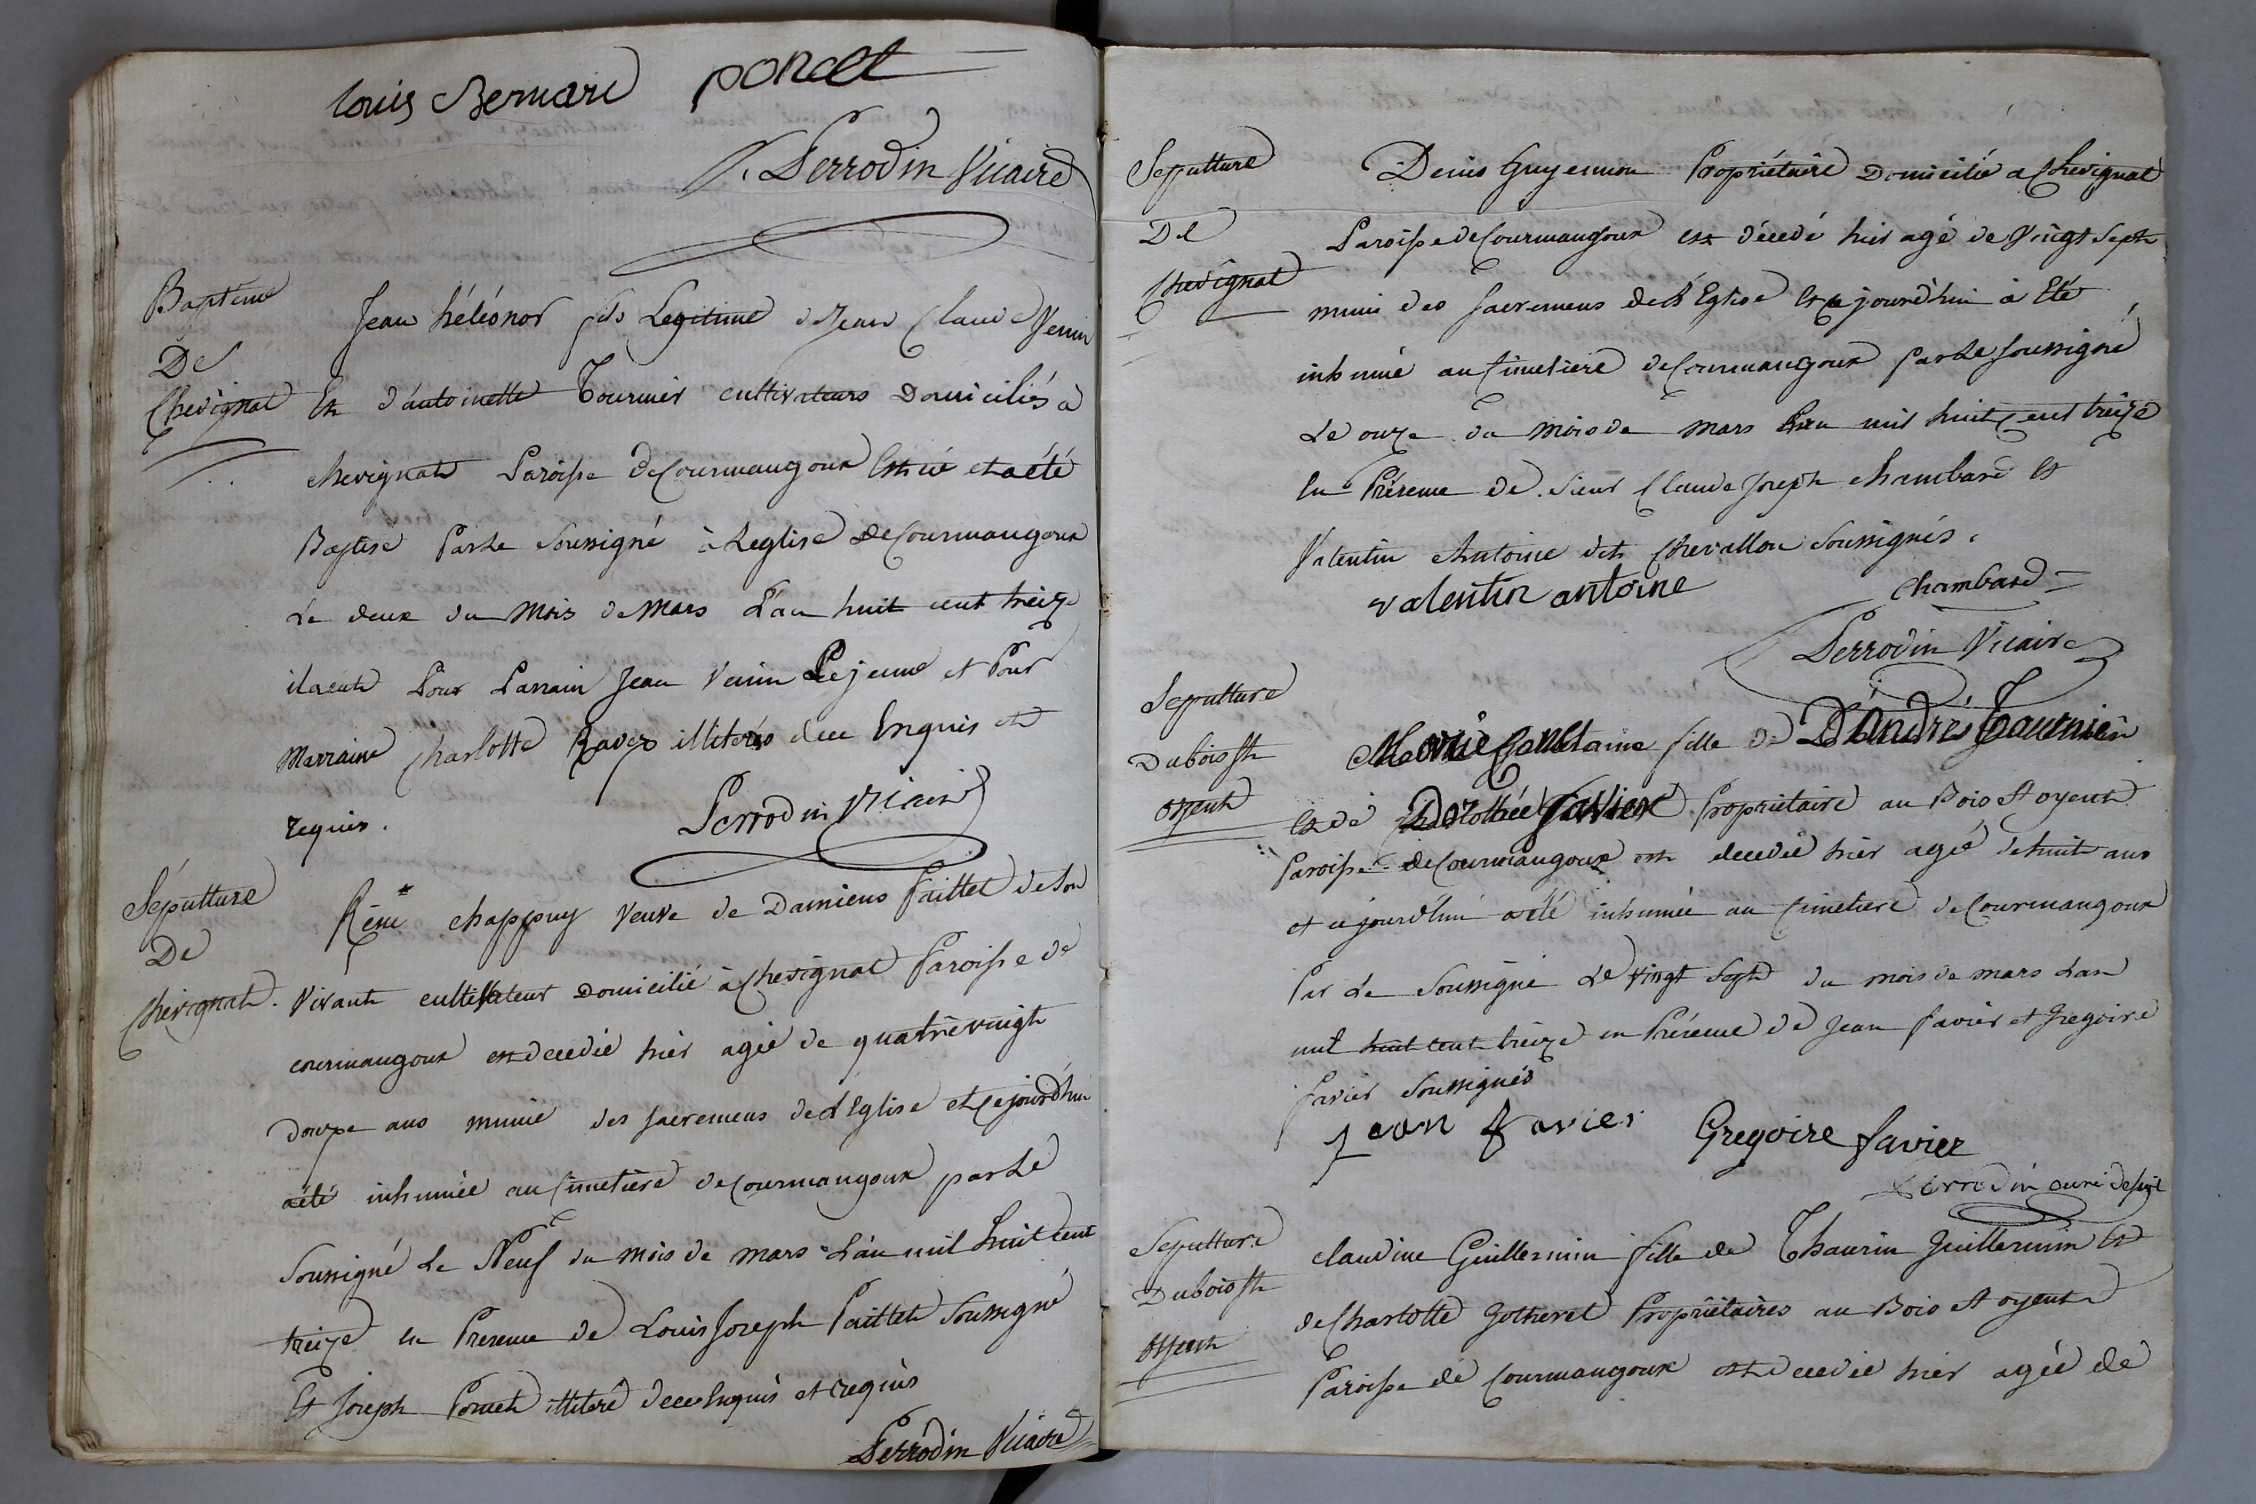 louis Bernard poncet
Perrodin Vicaire
Baptême
De
Chevignat
Jean héléonor fils Legitime de Jean Claude Venin
Et d'antoinette Tournier cultivateurs Domiciliés a
chevignat Paroisse de Courmangoux Est né et a été
Baptisé Par le Soussigné à Leglise de Courmangoux
Le deux du Mois de Mars L'an huit cent treize
il a eut Pour Parrain Jean Venin Le jeune et Pour
Marraine Charlotte illiterés de ce Enquis et
requis.
Perrodin Vicaire
Sépulture
De
Chevignat.
Réne chappuy veuve de Damiens Paillet de Son
Vivant cultivateur Domicilié à Chevignat Paroisse de
courmangoux est decedée hièr agée de quatrevingt
douze ans munie des sacremens de L'Eglise et ce jourd'hui
a été inhumée au Cimetière de Courmangoux par Le
Soussigné Le Neuf du mois de mars L'an mil huit cent
treize en Presence de Louis Joseph Paillet Soussigné
Et Joseph Poncet illiteré de ce Enquis et requis
Perrodin Vicaire
Sepulture
De
Chevignat
Denis Guyennon Propriétaire Domicilié a Chevignat
Paroisse de Courmangoux est décedé hier agé de Vingt Sept
muni des Sacremens de L'Eglise Et ce jourd'hui à Eté
inhumé au Cimetiere de Courmangoux par Le Soussigné
Le onze du mois de mars L'an mil huit Cent treize
En Présence de Sieur Claude Joseph Chambard Et
Valentin Antoine dit Chevallon Soussignés.
valentin antoine
Chambard
Perrodin Vicaire
Sepulture
Du bois St
oyent
Marie fille de D'André Tournier
et de Dorothée favier Propriétaire au Bois St oyent
Paroisse de Courmangoux est decedée hièr agée de huit ans
et ce jourd'hui a été inhumée au Cimetiere de Courmangoux
Par Le Soussigné Le vingt Sept du mois de mars L'an
mil huit cent treize en Présence de Jean favier et Gregoire
favier Soussignés
Jean favier Gregoire favier
Perrodin
Sepulture
Du bois St
oyent
claudine Guillermin fille de Thaurin Guillermin Et
de Charlotte Gotheret Propriétaires au Bois St oyent
Paroisse de Courmangoux est decedée hièr agée de